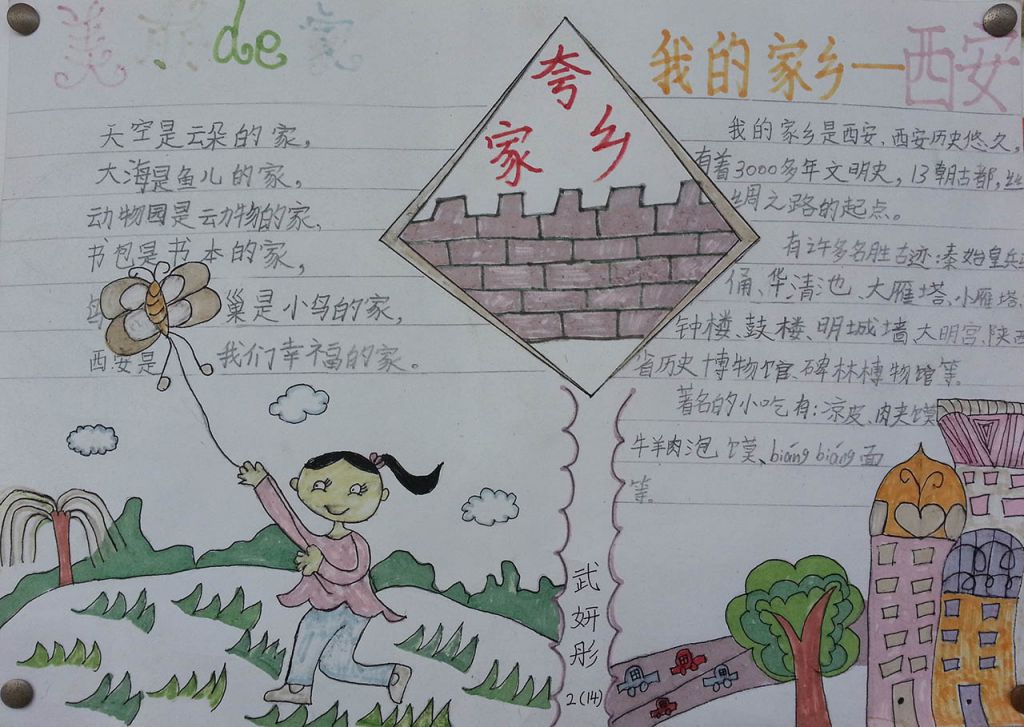 美丽de家
天空是云朵的家，
大海是鱼儿的家，
动物园是动物的家，
书包是书本的家，
巢是小鸟的家，
西安是我们幸福的家。
夸
家乡
我的家乡—西安
我的家乡是西安，西安历史悠久，
有着3000多年文明史，13朝古都，丝
绸之路的起点。
有许多名胜古迹：秦始皇兵马
俑、华清池、大雁塔、小雁塔、
钟楼、鼓楼、明城墙、大明宫、陕西
省历史博物馆、碑林博物馆等。
著名的小吃有：凉皮、肉夹馍
牛羊肉泡馍、biángbiáng面
等。
武妍彤
2(14)